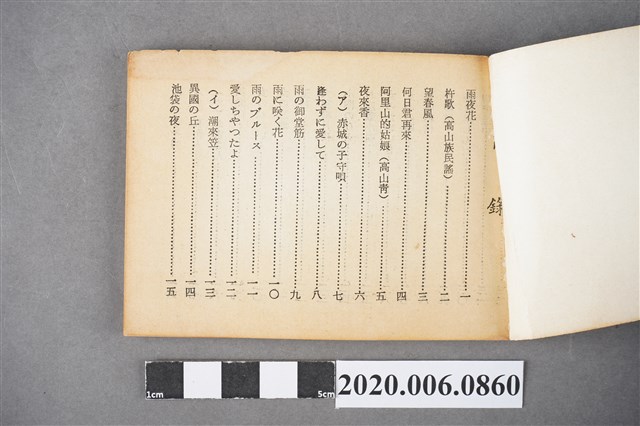 錄
雨夜花 一
杵歌（高山族民謠） 二
望春風 三
何日君再來 四
阿里山的姑娘（高山青） 五
夜來香 六
（ア）赤城の子守唄 七
逢わずに愛して 八
雨の御堂筋 九
雨に咲く花 一〇
雨のブルース 一一
愛しちやつたよ 一二
（イ）潮來笠 一三
異國の丘 一四
池袋の夜 一五
1cm 5cm
2020.006.0860